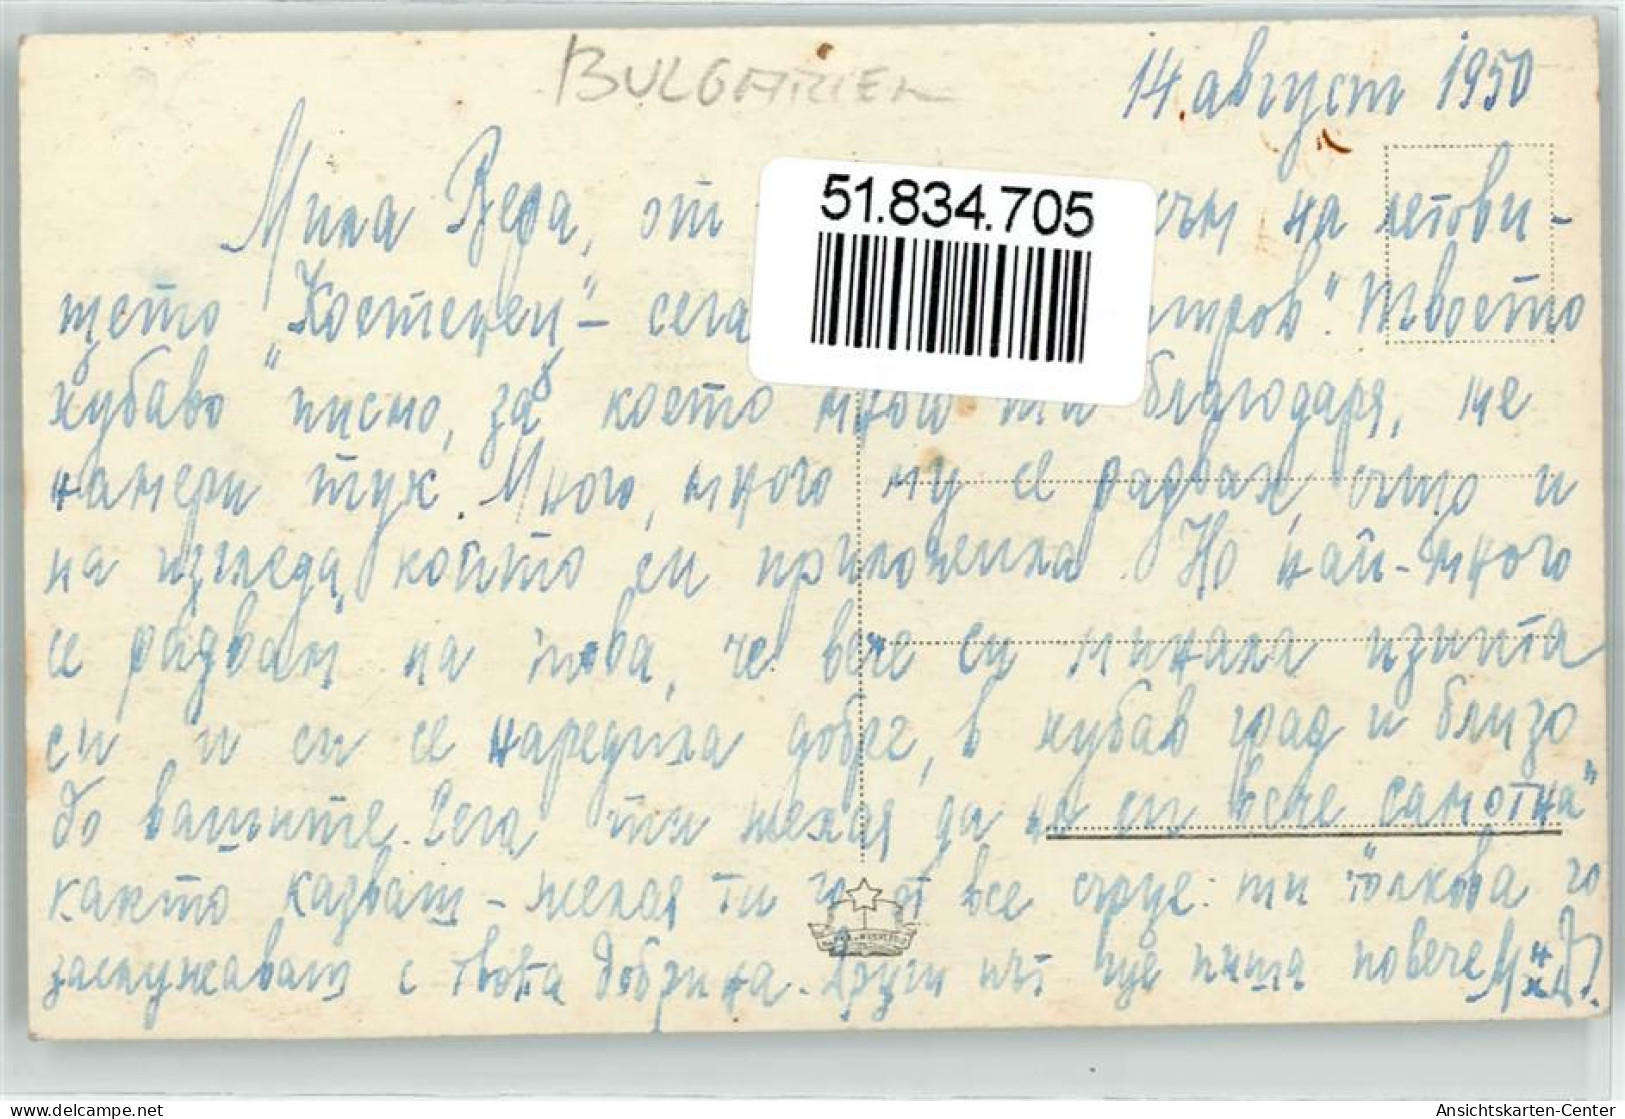 BULGARIEN
14 август 1950
51.834.705
Мила Вера, от на летови-
щето "Костенец" - сега Твоето
хубаво писмо, за което много ти благодаря, ме
намери тук. Много, много му се радвах, също и
на изгледа, който си приложила. Но най-много
се радвам на това, че вече си минала изпита
си и си се наредила добре, в хубав град и близо
до вашите. Сега ти желая да не си вече самотна"
както казваш - желая ти го от все сърце: ти толкова го
заслужаваш с твоята добрина. Други път ще пиша повече
delcampe.net
Ansichtskarten-Center